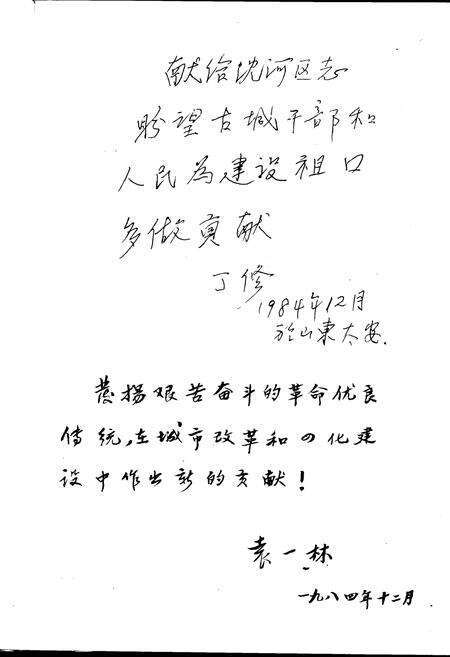 献给沈河区志
盼望古城干部和
人民為建设祖口
多做貢献
丁修
1984年12月
於山東太安.
發揚艰苦奋斗的革命优良
传统,在城市改革和四化建
设中作出新的贡献!
袁一林
一九八四年十二月